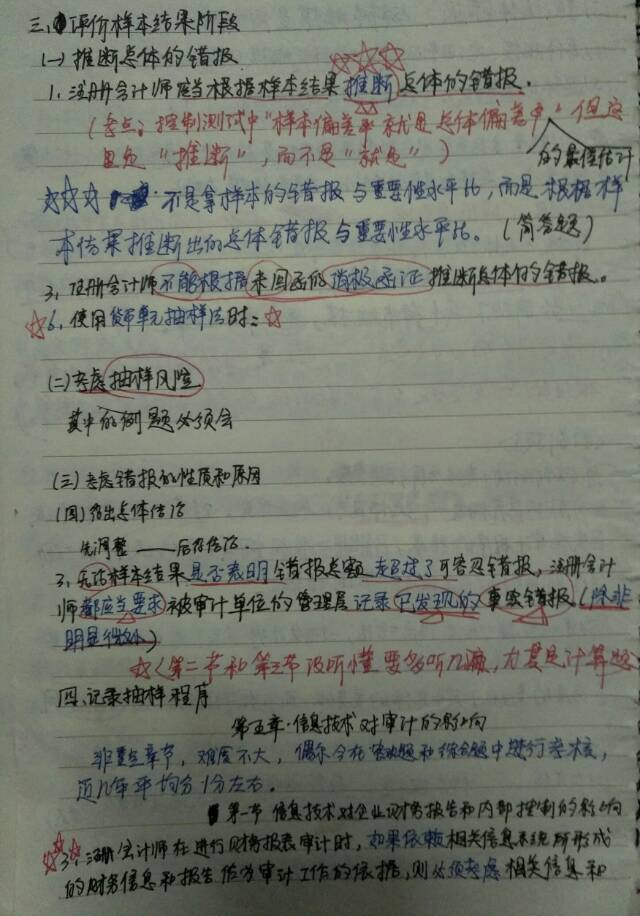 三、评价样本结果阶段
(一)推断总体的错报
1、注册会计师应当根据样本结果推断总体的错报。
(考点：控制测试中"样本偏差率就是总体偏差率"但这
里是"推断"，而不是"就是")
的最佳估计
不是拿样本的错报与重要性水平比，而是根据样
本结果推断出的总体错报与重要性水平比。(简答题)
3、注册会计师不能根据未回函的消极函证推断总体的错报。
6、使用货币单元抽样法时：
(二)考虑抽样风险
其中的例题必须会
(三)考虑错报的性质和原因
(四)得出总体结论
先调整——后得结论。
3、无论样本结果是否表明错报总额超过了可容忍错报，注册会计
师都应当要求被审计单位的管理层记录已发现的事实错报(除非
明显微小)
(第二节和第三节没听懂要多听几遍，尤其是计算题
四、记录抽样程序
第五章·信息技术对审计的影响
非重点章节，难度不大，偶尔会在客观题和综合题中进行考核，
近几年平均分1分左右。
第一节 信息技术对企业财务报告和内部控制的影响
3、注册会计师在进行财务报表审计时，如果依赖相关信息系统所形成
的财务信息和报告作为审计工作的依据，则必须考虑相关信息和